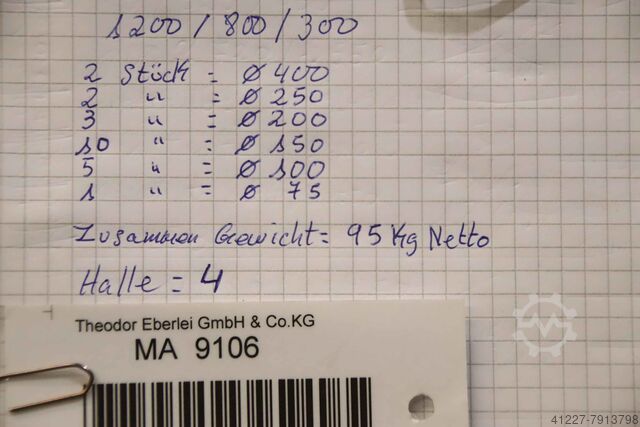 1200 / 800 / 300
2 Stück = Ø 400
2 " = Ø 250
3 " = Ø 200
10 " = Ø 150
5 " = Ø 100
1 " = Ø 75
Zusammen Gewicht = 95 Kg Netto
Halle = 4
Theodor Eberlei GmbH & Co.KG
MA 9106
41227-7913798